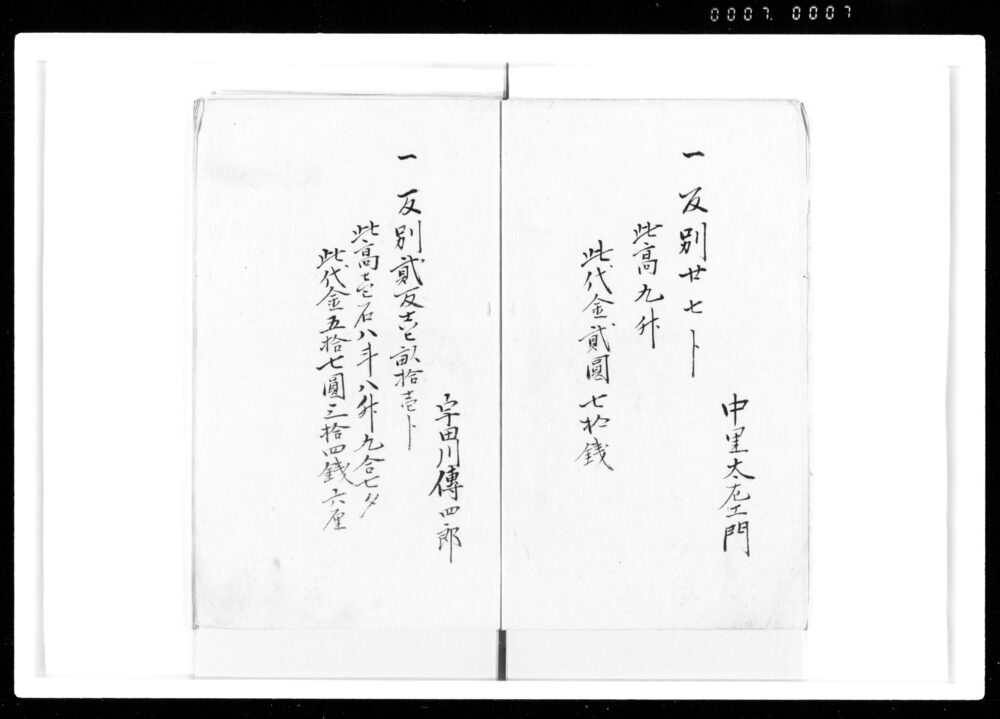 0007. 0007
中里太左エ門
一 反別廿七ト
此高九升
此代金貳圓七拾銭
宇田川傳四郎
一 反別貳反壱畝拾壱ト
此高壱石八斗八升九合七夕
此代金五拾七圓三拾四銭六厘